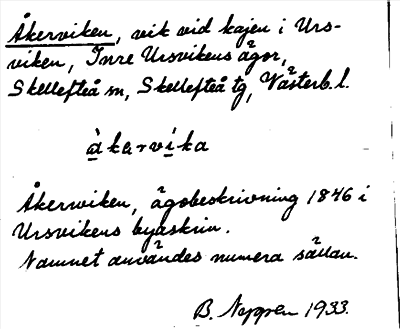 Åkerviken, vik vid kajen i Urs-
viken, Inre Ursvikens ägor,
Skellefteå m, Skellefteå tg, Västerb. l.
àkarvíka
Åkerwiken, ägobeskrivning 1846 i
Ursvikens byaskrin.
Namnet användes numera sällan.
B. 1933.